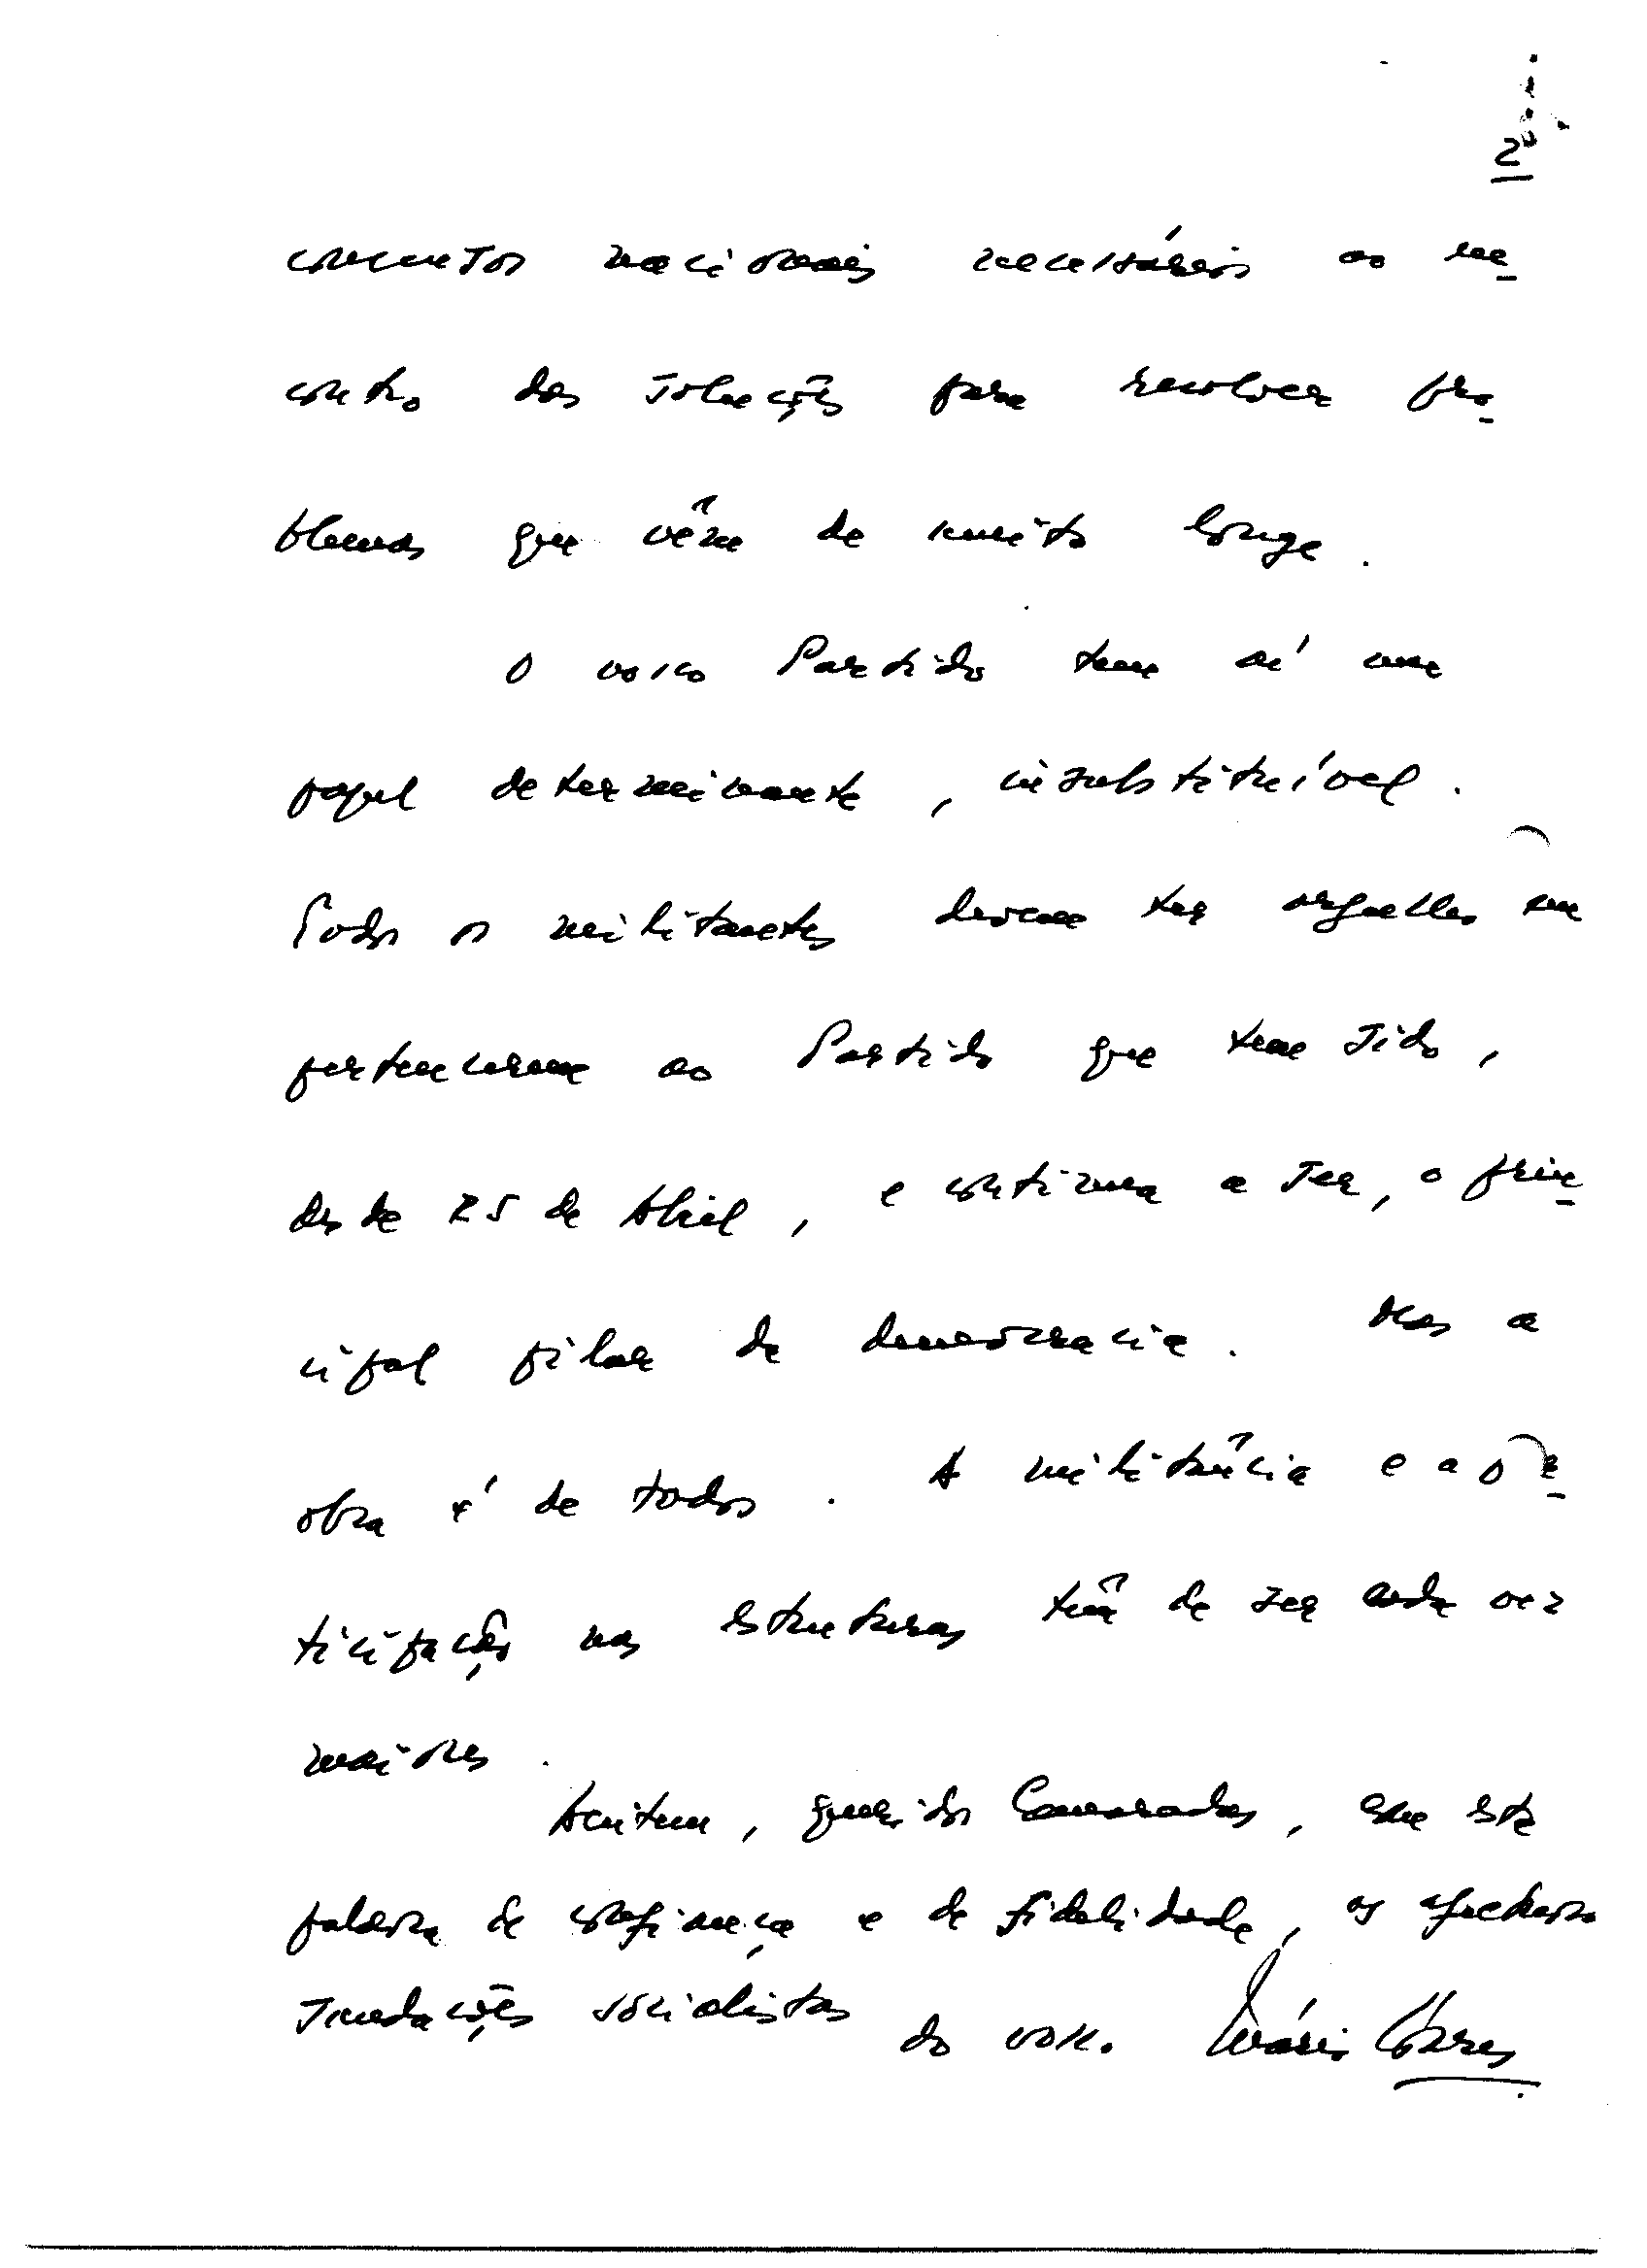 2
consensos nacionais necessários ao en-
contro das soluções para resolver pro-
blemas que vêm de muito longe.
O nosso Partido tem aí um
papel determinante, insubstituível.
Todos os militantes devem ter orgulho em
pertencerem ao Partido que tem sido,
desde 25 de Abril, e continua a ser, o prin-
cipal pilar da democracia. Mas a
obra é de todos. A militância e a par-
ticipação nas estruturas têm de ser cada vez
maiores.
Aceitem, queridos Camaradas, com esta
palavra de confiança e de fidelidade, as afectuosas
saudações socialistas
do vosso Mário Soares